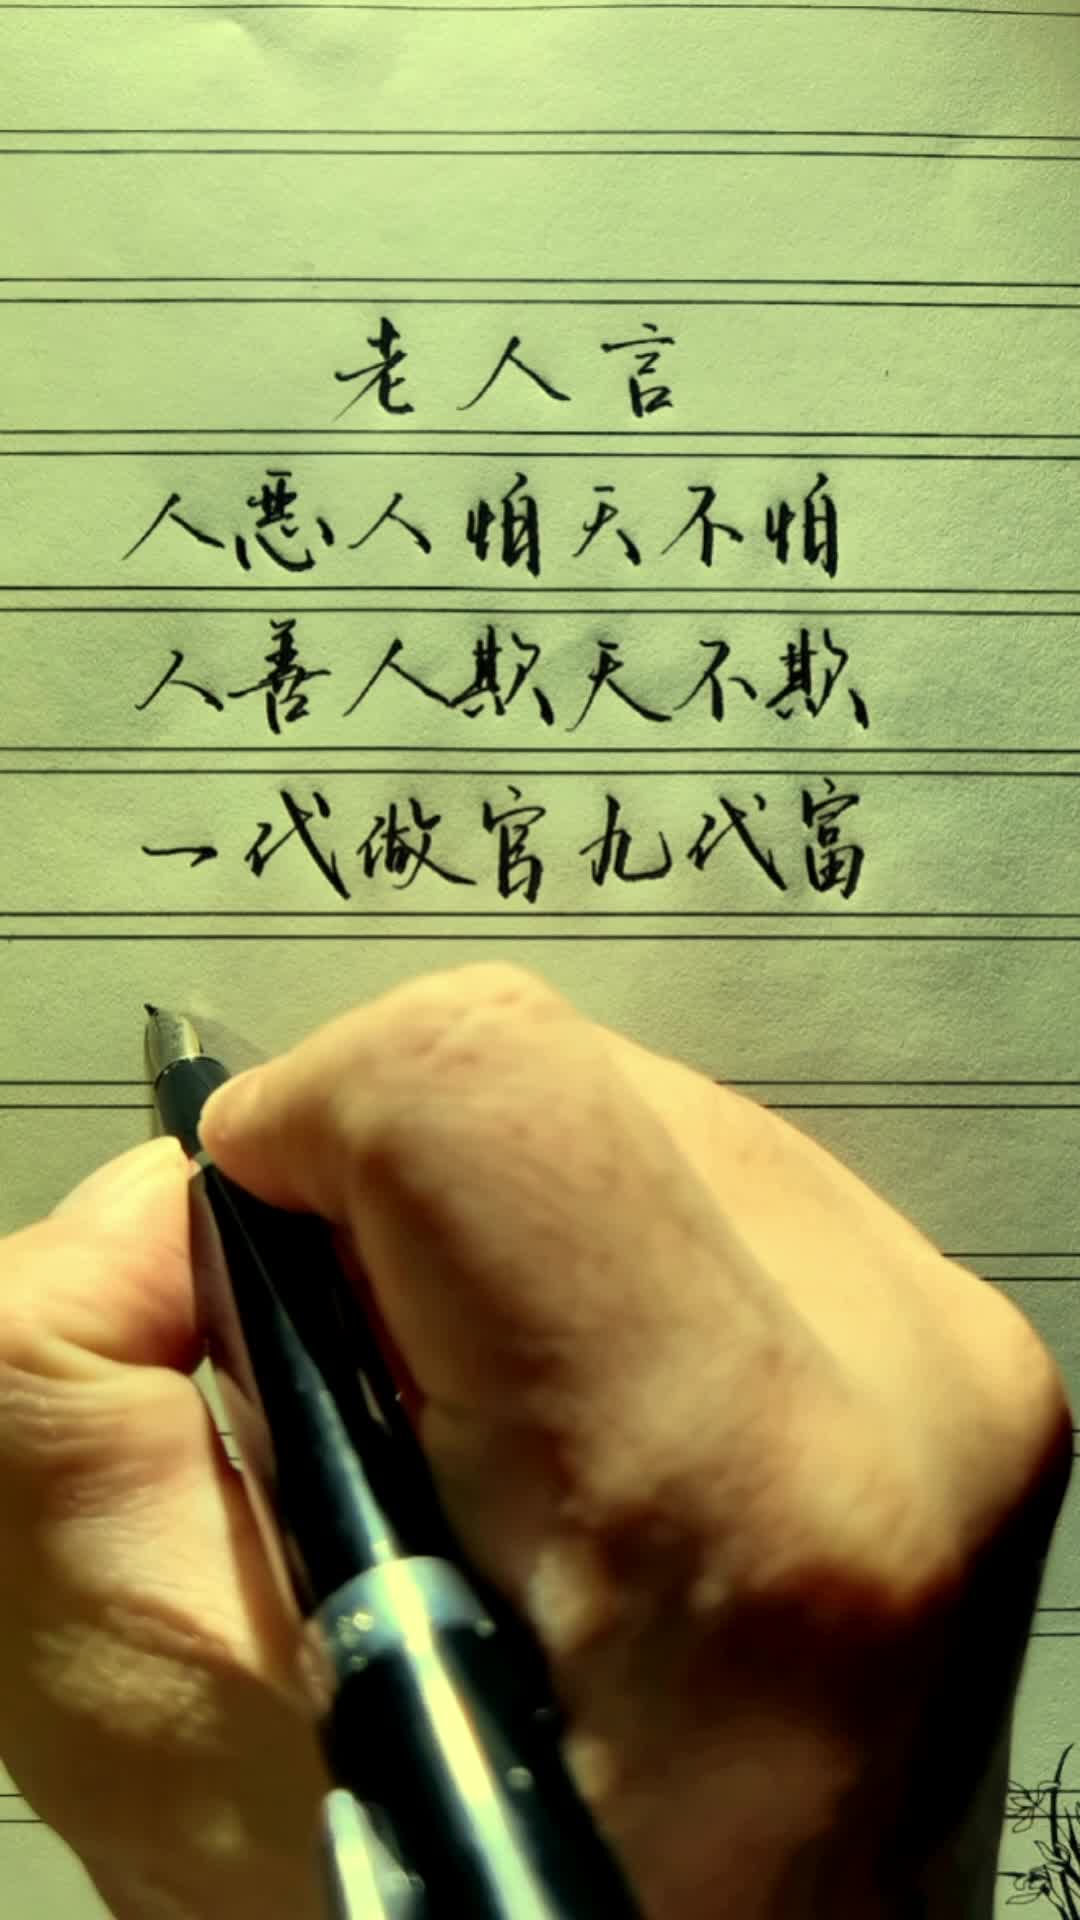 老人言
人恶人怕天不怕
人善人欺天不欺
一代做官九代富